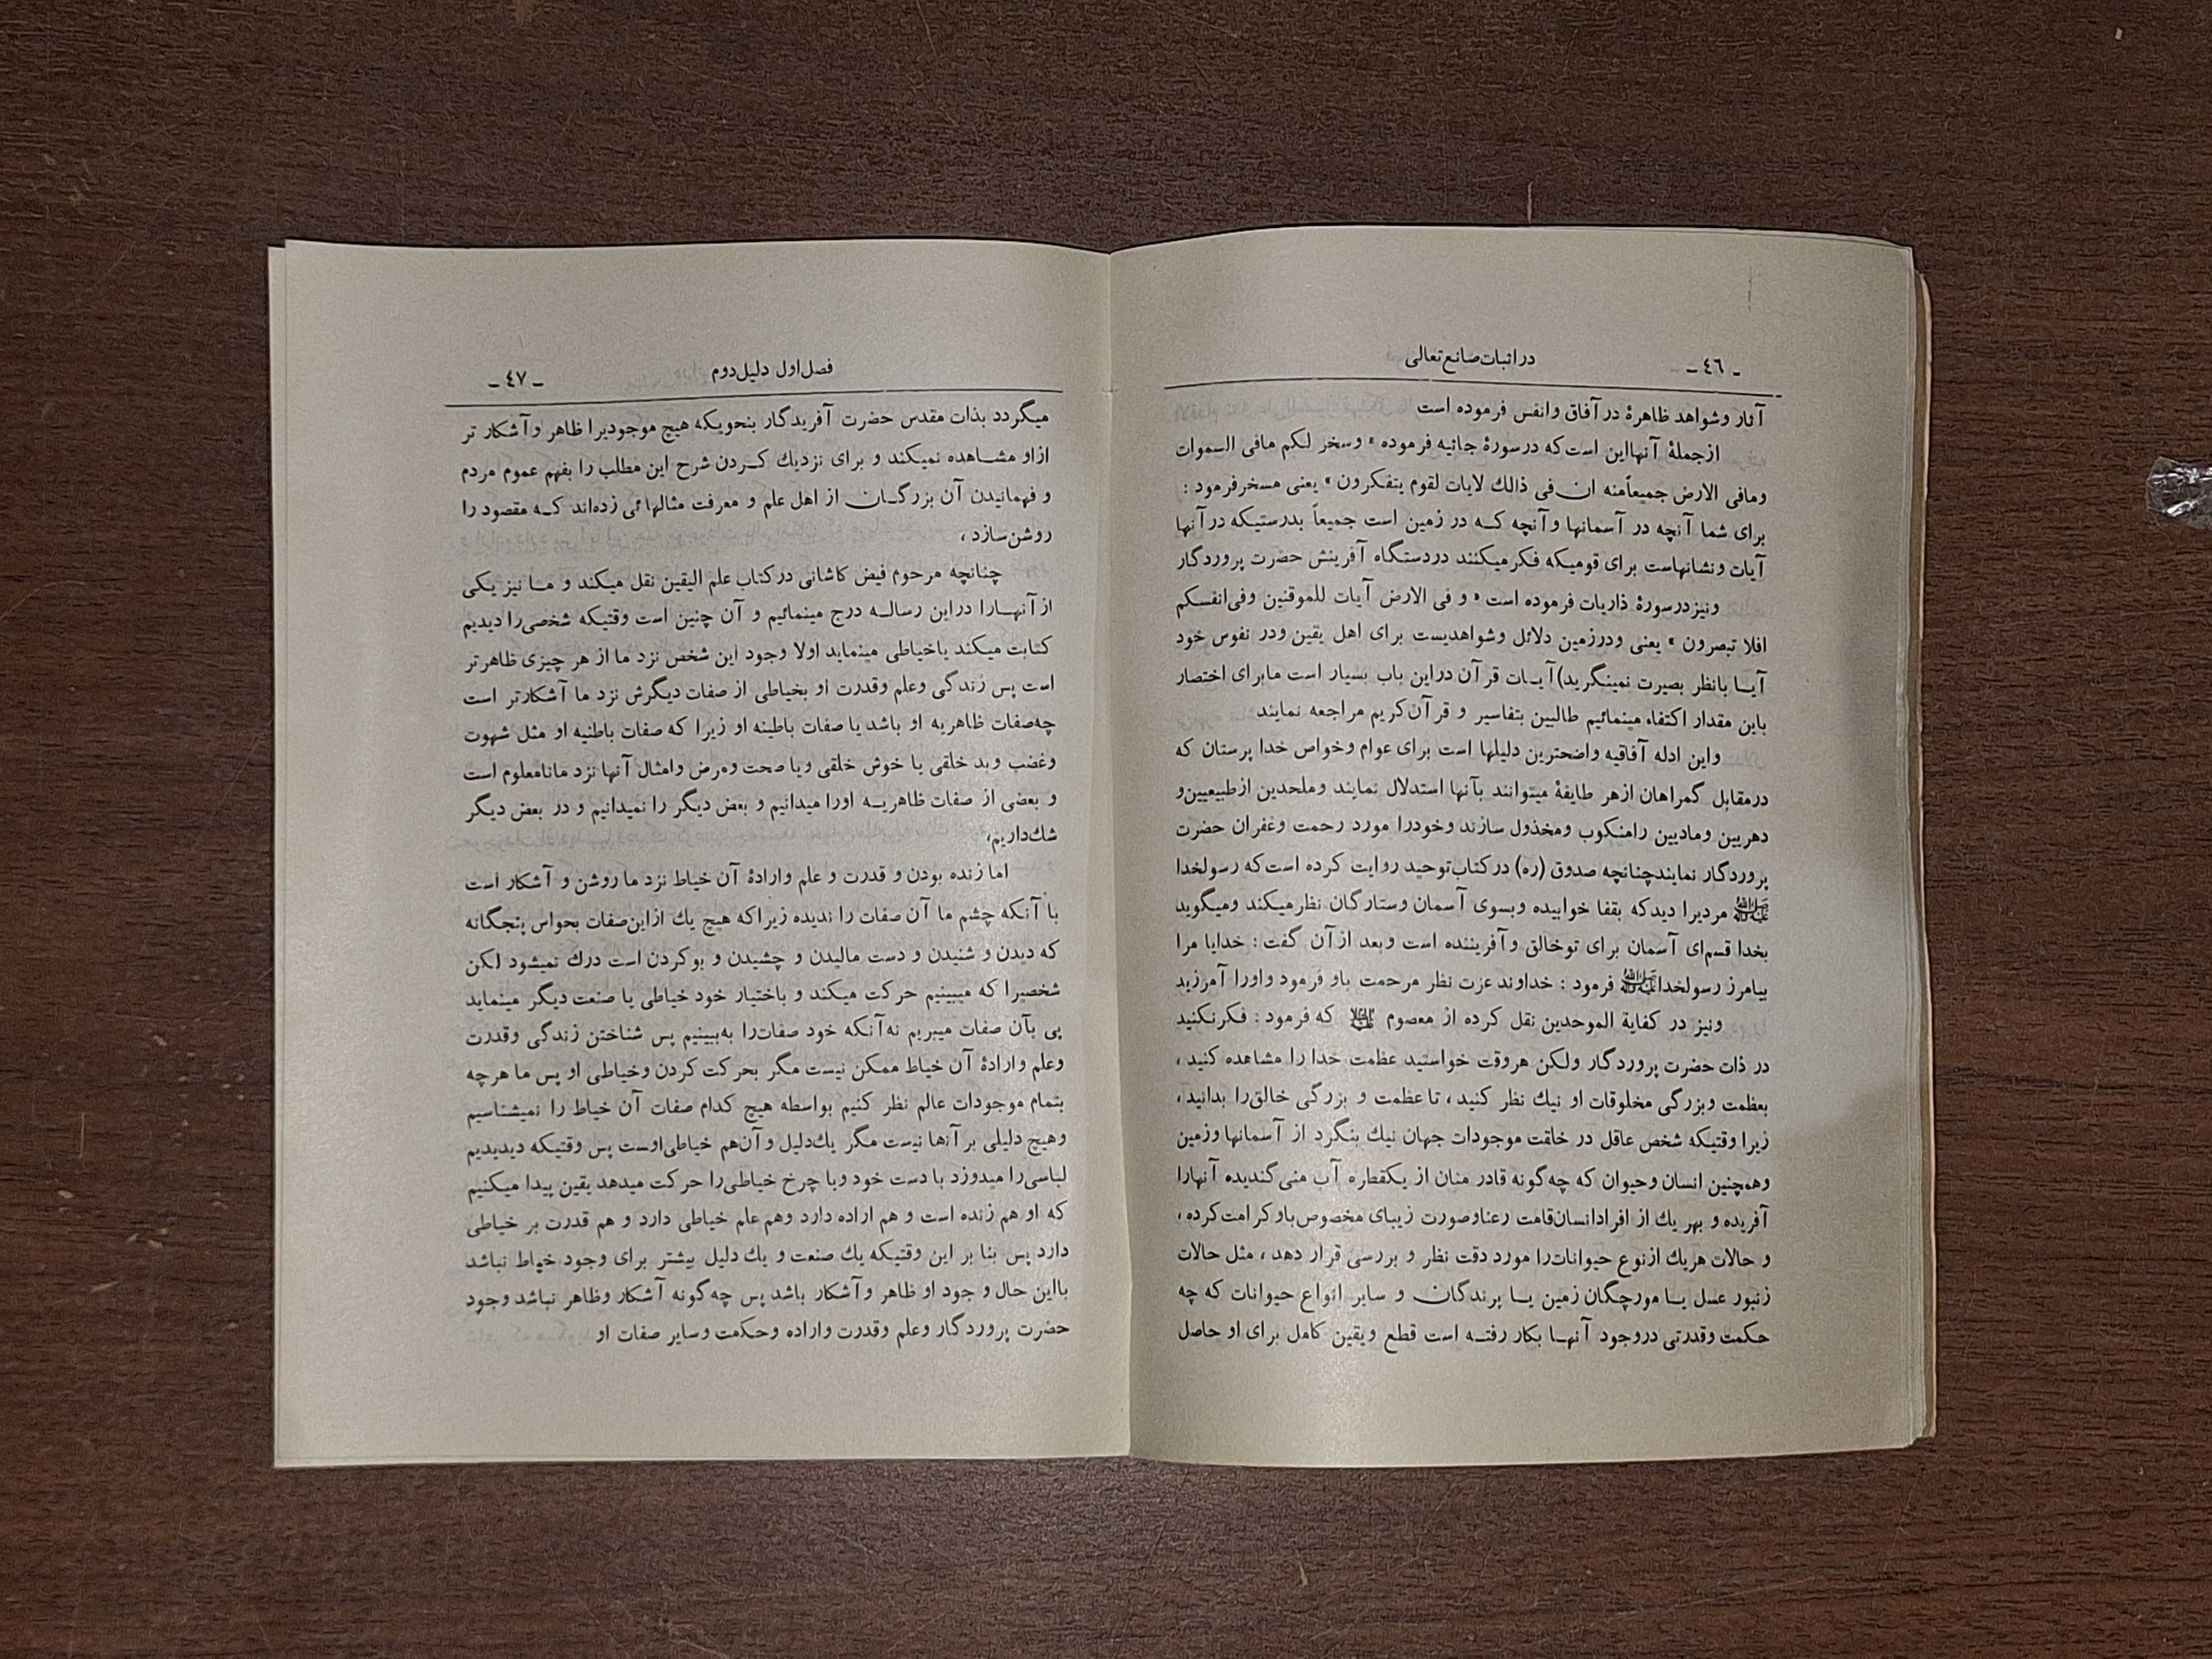 ـ ٤٦ ـ
در اثبات صانع تعالی
آثار وشواهد ظاهرهٔ در آفاق وانفس فرموده است
ازجملهٔ آنهااین است که در سورهٔ جاثیه فرموده « وسخر لکم مافی السموات
ومافی الارض جمیعاًمنه ان فی ذالك لایات لقوم یتفکرون » یعنی مسخرفرمود :
برای شما آنچه در آسمانها و آنچه که در زمین است جمیعاً بدرستیکه در آنها
آیات ونشانهاست برای قومیکه فکرمیکنند دردستگاه آفرینش حضرت پروردگار
ونیزدرسورهٔ ذاریات فرموده است « و فی الارض آیات للموقنین وفی‌انفسکم
افلا تبصرون » یعنی ودرزمین دلائل وشواهدیست برای اهل یقین ودر نفوس خود
آیا بانظر بصیرت نمینگرید) آیات قرآن دراین باب بسیار است مابرای اختصار
باین مقدار اکتفاء مینمائیم طالبین بتفاسیر و قرآن‌کریم مراجعه نمایند
واین ادله آفاقیه واضحترین دلیلها است برای عوام وخواص خدا پرستان که
درمقابل گمراهان ازهر طایفهٔ میتوانند بآنها استدلال نمایند وملحدین ازطبیعیین‌و
دهریین ومادیین رامنکوب ومخذول سازند وخودرا مورد رحمت وغفران حضرت
پروردگار نمایندچنانچه صدوق (ره) درکتاب‌توحید روایت کرده است‌که رسولخدا
ﷺ مردیرا دیدکه بقفا خوابیده وبسوی آسمان وستارگان نظرمیکند ومیگوید
بخدا قسم‌ای آسمان برای توخالق و آفریننده است وبعد از آن گفت : خدایا مرا
بیامرز رسولخداﷺ فرمود : خداوند عزت نظر مرحمت باو فرمود واورا آمرزید
ونیز در کفایة الموحدین نقل کرده از معصوم علیه‌السلام که فرمود : فکرنکنید
در ذات حضرت پروردگار ولکن هروقت خواستید عظمت خدا را مشاهده کنید ،
بعظمت وبزرگی مخلوقات او نیك نظر کنید ، تاعظمت و بزرگی خالق‌را بدانید ،
زیرا وقتیکه شخص عاقل در خلقت موجودات جهان نیك بنگرد از آسمانها وزمین
وهمچنین انسان وحیوان که چه‌گونه قادر منان از یکقطره آب منی‌گندیده آنهارا
آفریده و بهر یك از افرادانسان‌قامت رعناوصورت زیبای مخصوص‌باوکرامت‌کرده ،
و حالات هریك ازنوع حیوانات‌را مورد دقت نظر و بررسی قرار دهد ، مثل حالات
زنبور عسل یا مورچگان زمین یا پرندگان و سایر انواع حیوانات که چه
حکمت وقدرتی دروجود آنها بکار رفته است قطع ویقین کامل برای او حاصل
فصل‌اول دلیل‌دوم
ـ ٤٧ ـ
میگردد بذات مقدس حضرت آفریدگار بنحویکه هیچ موجودیرا ظاهر و آشکار تر
ازاو مشاهده نمیکند و برای نزدیك کردن شرح این مطلب را بفهم عموم مردم
و فهمانیدن آن بزرگان از اهل علم و معرفت مثالهائی زده‌اند که مقصود را
روشن‌سازد ،
چنانچه مرحوم فیض کاشانی درکتاب علم الیقین نقل میکند و ما نیز یکی
از آنهارا دراین رساله درج مینمائیم و آن چنین است وقتیکه شخصی‌را دیدیم
کتابت میکند یاخیاطی مینماید اولا وجود این شخص نزد ما از هر چیزی ظاهرتر
است پس زندگی وعلم وقدرت او بخیاطی از صفات دیگرش نزد ما آشکارتر است
چه‌صفات ظاهریه او باشد یا صفات باطینه او زیرا که صفات باطنیه او مثل شهوت
وغضب وبد خلقی یا خوش خلقی ویا صحت ومرض وامثال آنها نزد مانامعلوم است
و بعضی از صفات ظاهریه اورا میدانیم و بعض دیگر را نمیدانیم و در بعض دیگر
شك‌داریم،
اما زنده بودن و قدرت و علم وارادهٔ آن خیاط نزد ما روشن و آشکار است
با آنکه چشم ما آن صفات را ندیده زیراکه هیچ یك ازاین‌صفات بحواس پنجگانه
که دیدن و شنیدن و دست مالیدن و چشیدن و بوکردن است درك نمیشود لکن
شخصیرا که میبینیم حرکت میکند و باختیار خود خیاطی یا صنعت دیگر مینماید
پی بآن صفات میبریم نه‌آنکه خود صفات‌را به‌بینیم پس شناختن زندگی وقدرت
وعلم وارادهٔ آن خیاط ممکن نیست مگر بحرکت کردن وخیاطی او پس ما هرچه
بتمام موجودات عالم نظر کنیم بواسطه هیچ کدام صفات آن خیاط را نمیشناسیم
وهیچ دلیلی بر آنها نیست مگر یك‌دلیل و آن‌هم خیاطی‌اوست پس وقتیکه دیدیدیم
لباسی‌را میدوزد با دست خود وبا چرخ خیاطی‌را حرکت میدهد یقین پیدا میکنیم
که او هم زنده است و هم اراده دارد وهم علم خیاطی دارد و هم قدرت بر خیاطی
دارد پس بنا بر این وقتیکه یك صنعت و یك دلیل بیشتر برای وجود خیاط نباشد
بااین حال و جود او ظاهر و آشکار باشد پس چه‌گونه آشکار وظاهر نباشد وجود
حضرت پروردگار وعلم وقدرت واراده وحکمت وسایر صفات او